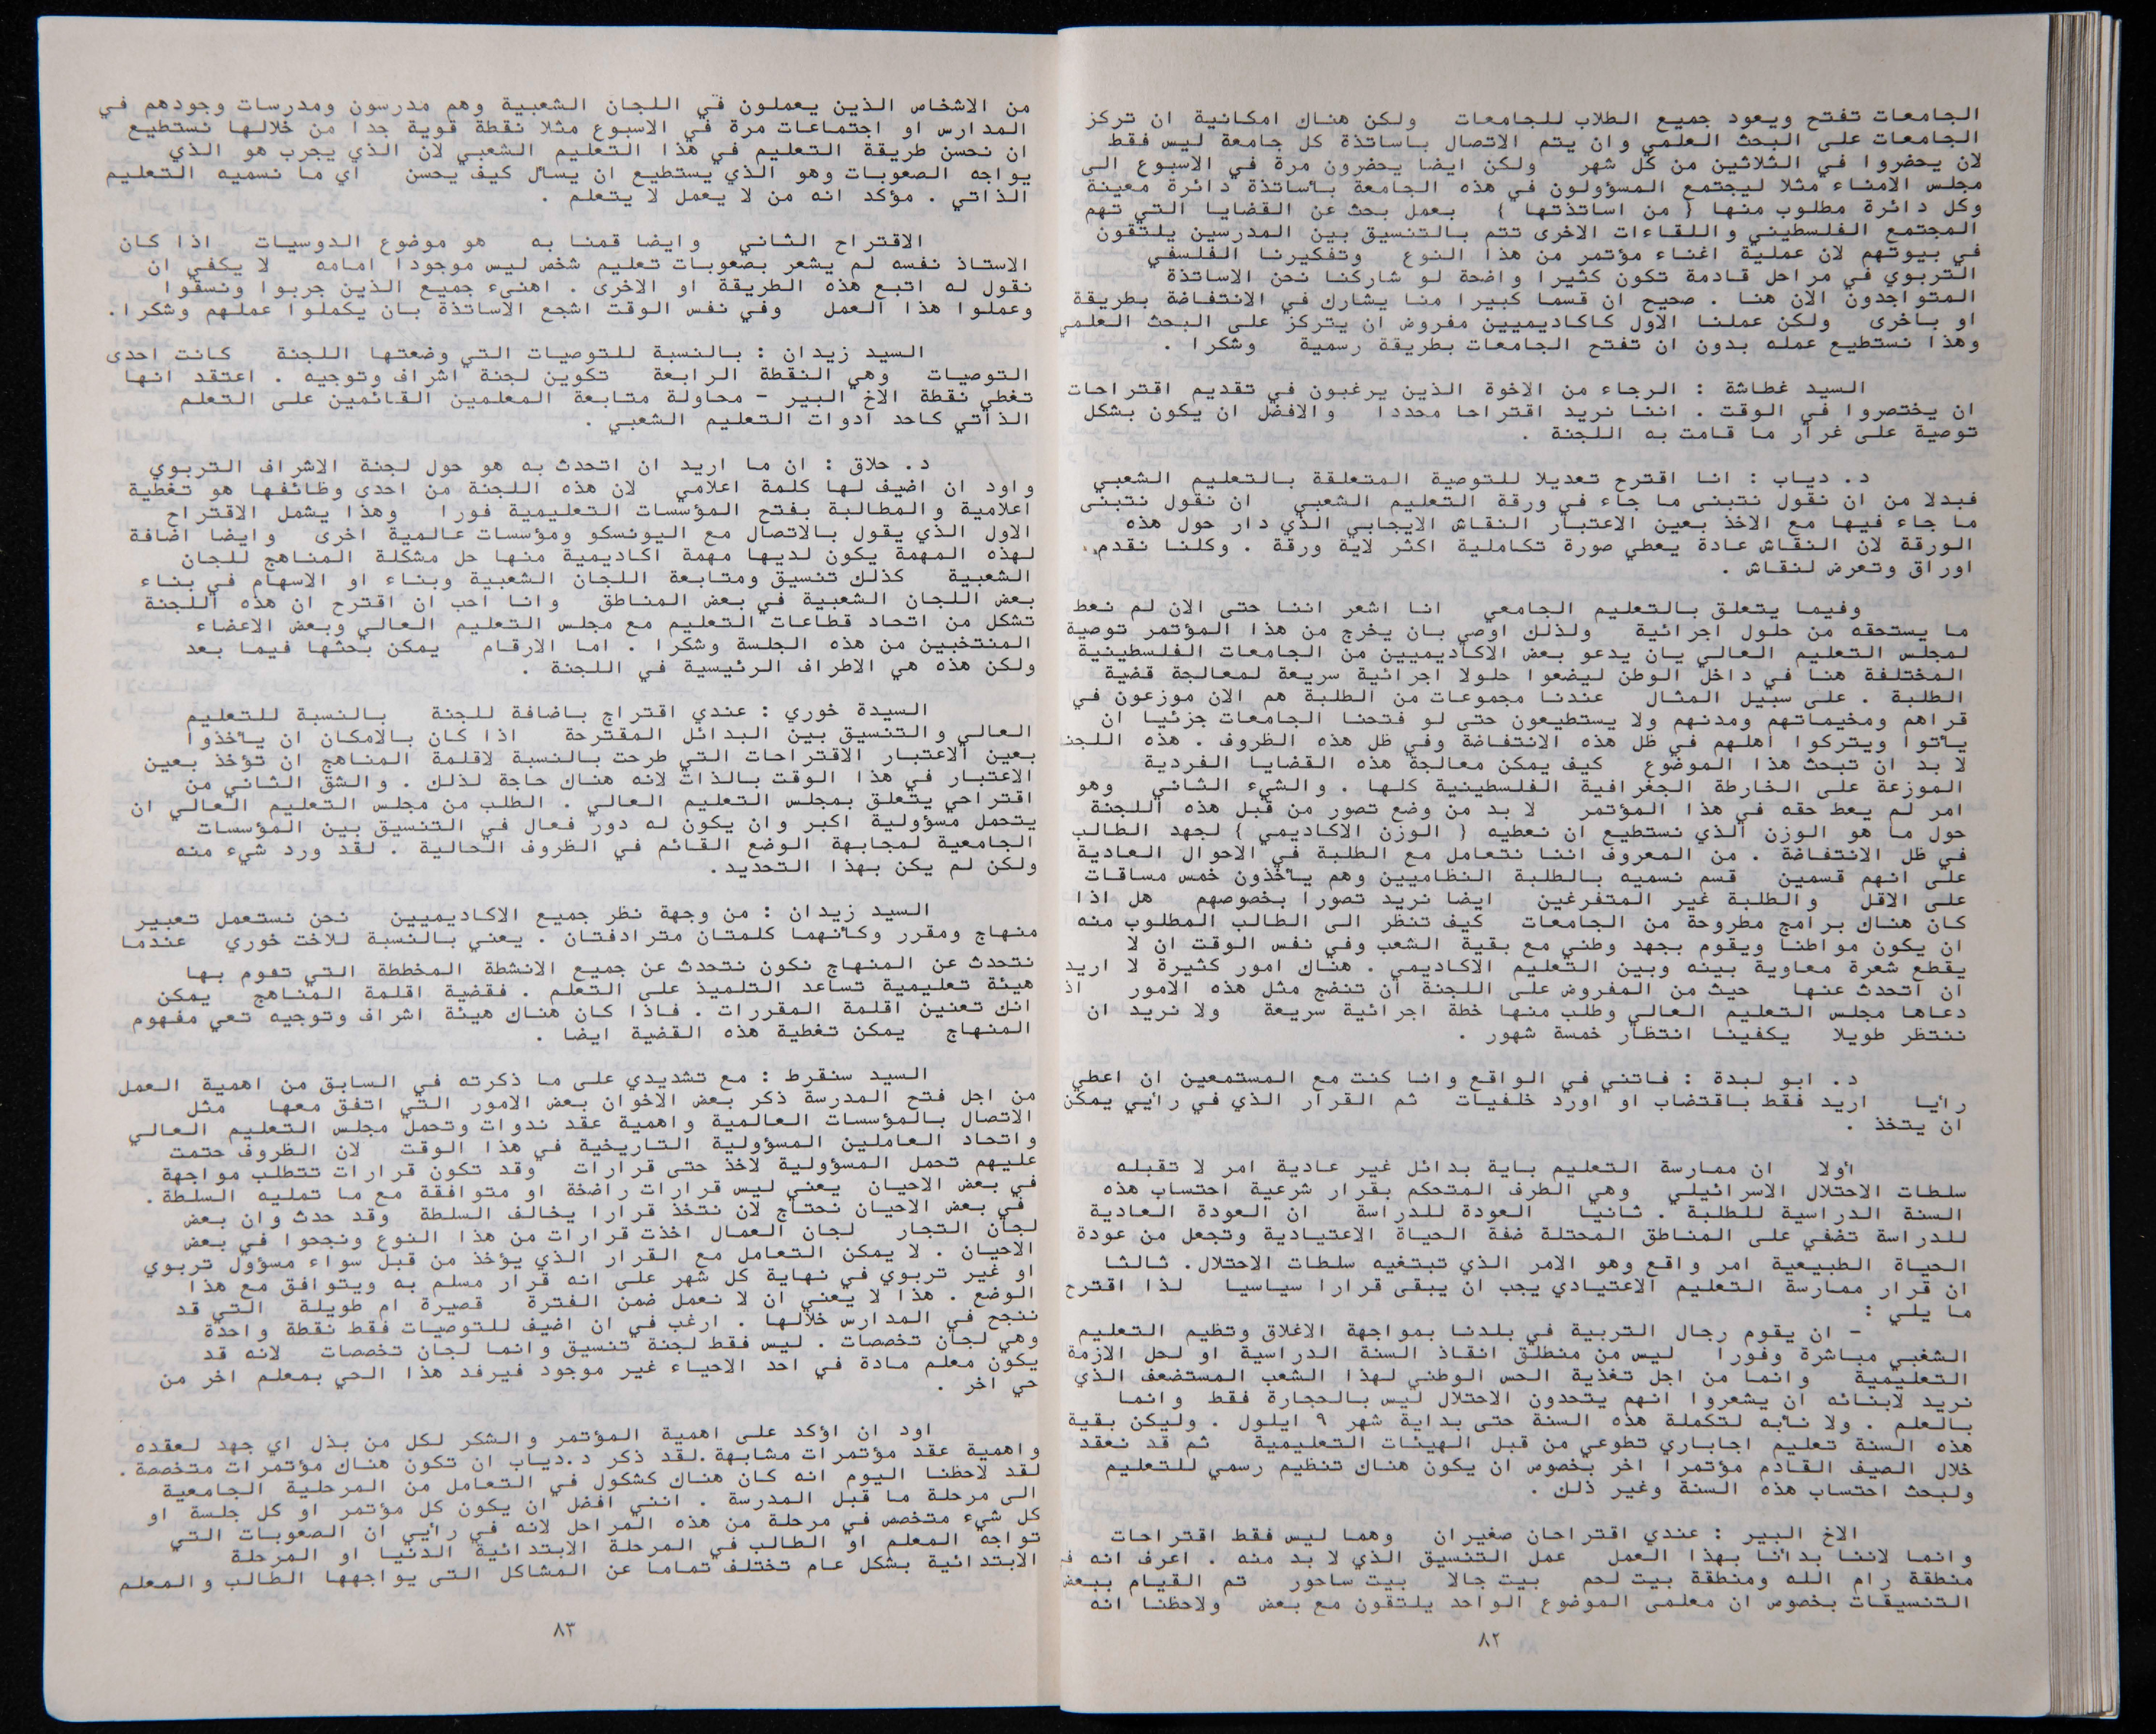 الجامعات تفتح ويعود جميع الطلاب للجامعات   ولكن هناك امكانية ان تركز
الجامعات على البحث العلمي وان يتم الاتصال باساتذة كل جامعة ليس فقط
لان يحضروا في الثلاثين من كل شهر   ولكن ايضا يحضرون مرة في الاسبوع الى
مجلس الامناء مثلا ليجتمع المسؤولون في هذه الجامعة بأساتذة دائرة معينة
وكل دائرة مطلوب منها { من اساتذتها }   بعمل بحث عن القضايا التي تهم
المجتمع الفلسطيني واللقاءات الاخرى تتم بالتنسيق بين المدرسين يلتقون
في بيوتهم لان عملية اغناء مؤتمر من هذا النوع   وتفكيرنا الفلسفي
التربوي في مراحل قادمة تكون كثيرا واضحة لو شاركنا نحن الاساتذة
المتواجدون الان هنا . صحيح ان قسما كبيرا منا يشارك في الانتفاضة بطريقة
او باخرى   ولكن عملنا الاول كاكاديميين مفروض ان يتركز على البحث العلمي
وهذا نستطيع عمله بدون ان تفتح الجامعات بطريقة رسمية   وشكرا .
السيد غطاشة : الرجاء من الاخوة الذين يرغبون في تقديم اقتراحات
ان يختصروا في الوقت . اننا نريد اقتراحا محددا   والافضل ان يكون بشكل
توصية على غرار ما قامت به اللجنة .
د. دياب : انا اقترح تعديلا للتوصية المتعلقة بالتعليم الشعبي
فبدلا من ان نقول نتبنى ما جاء في ورقة التعليم الشعبي   ان نقول نتبنى
ما جاء فيها مع الاخذ بعين الاعتبار النقاش الايجابي الذي دار حول هذه
الورقة لان النقاش عادة يعطي صورة تكاملية اكثر لاية ورقة . وكلنا نقدم
اوراق وتعرض لنقاش .
وفيما يتعلق بالتعليم الجامعي   انا اشعر اننا حتى الان لم نعط
ما يستحقه من حلول اجرائية   ولذلك اوصي بان يخرج من هذا المؤتمر توصية
لمجلس التعليم العالي يان يدعو بعض الاكاديميين من الجامعات الفلسطينية
المختلفة هنا في داخل الوطن ليضعوا حلولا اجرائية سريعة لمعالجة قضية
الطلبة . على سبيل المثال   عندنا مجموعات من الطلبة هم الان موزعون في
قراهم ومخيماتهم ومدنهم ولا يستطيعون حتى لو فتحنا الجامعات جزئيا ان
يأتوا ويتركوا اهلهم في ظل هذه الانتفاضة وفي ظل هذه الظروف . هذه اللجنة
لا بد ان تبحث هذا الموضوع   كيف يمكن معالجة هذه القضايا الفردية
الموزعة على الخارطة الجغرافية الفلسطينية كلها . والشيء الثاني   وهو
امر لم يعط حقه في هذا المؤتمر   لا بد من وضع تصور من قبل هذه اللجنة
حول ما هو الوزن الذي نستطيع ان نعطيه { الوزن الاكاديمي } لجهد الطالب
في ظل الانتفاضة . من المعروف اننا نتعامل مع الطلبة في الاحوال العادية
على انهم قسمين   قسم نسميه بالطلبة النظاميين وهم يأخذون خمس مساقات
على الاقل   والطلبة غير المتفرغين   ايضا نريد تصورا بخصوصهم   هل اذا
كان هناك برامج مطروحة من الجامعات   كيف تنظر الى الطالب المطلوب منه
ان يكون مواطنا ويقوم بجهد وطني مع بقية الشعب وفي نفس الوقت ان لا
يقطع شعرة معاوية بينه وبين التعليم الاكاديمي . هناك امور كثيرة لا اريد
ان اتحدث عنها   حيث من المفروض على اللجنة ان تنضج مثل هذه الامور   اذ
دعاها مجلس التعليم العالي وطلب منها خطة اجرائية سريعة   ولا نريد ان
ننتظر طويلا   يكفينا انتظار خمسة شهور .
د. ابو لبدة : فاتني في الواقع وانا كنت مع المستمعين ان اعطي
رأيا   اريد فقط باقتضاب او اورد خلفيات   ثم القرار الذي في رأيي يمكن
ان يتخذ .
أولا   ان ممارسة التعليم باية بدائل غير عادية امر لا تقبله
سلطات الاحتلال الاسرائيلي   وهي الطرف المتحكم بقرار شرعية احتساب هذه
السنة الدراسية للطلبة . ثانيا   العودة للدراسة   ان العودة العادية
للدراسة تضفي على المناطق المحتلة ضفة الحياة الاعتيادية وتجعل من عودة
الحياة الطبيعية امر واقع وهو الامر الذي تبتغيه سلطات الاحتلال. ثالثا
ان قرار ممارسة التعليم الاعتيادي يجب ان يبقى قرارا سياسيا   لذا اقترح
ما يلي :
– ان يقوم رجال التربية في بلدنا بمواجهة الاغلاق وتظيم التعليم
الشعبي مباشرة وفورا   ليس من منطلق انقاذ السنة الدراسية او لحل الازمة
التعليمية   وانما من اجل تغذية الحس الوطني لهذا الشعب المستضعف الذي
نريد لابنائه ان يشعروا انهم يتحدون الاحتلال ليس بالحجارة فقط   وانما
بالعلم . ولا نأبه لتكملة هذه السنة حتى بداية شهر ٩ ايلول . وليكن بقية
هذه السنة تعليم اجاباري تطوعي من قبل الهيئات التعليمية   ثم قد نعقد
خلال الصيف القادم مؤتمرا اخر بخصوص ان يكون هناك تنظيم رسمي للتعليم
ولبحث احتساب هذه السنة وغير ذلك .
الاخ البير : عندي اقتراحان صغيران   وهما ليس فقط اقتراحات
وانما لاننا بدأنا بهذا العمل   عمل التنسيق الذي لا بد منه . اعرف انه في
منطقة رام الله ومنطقة بيت لحم   بيت جالا   بيت ساحور   تم القيام ببعض
التنسيقات بخصوص ان معلمى الموضوع الواحد يلتقون مع بعض   ولاحظنا انه
٨٢
من الاشخاص الذين يعملون في اللجان الشعبية وهم مدرسون ومدرسات وجودهم في
المدارس او اجتماعات مرة في الاسبوع مثلا نقطة قوية جدا من خلالها نستطيع
ان نحسن طريقة التعليم في هذا التعليم الشعبي لان الذي يجرب هو الذي
يواجه الصعوبات وهو الذي يستطيع ان يسأل كيف يحسن   اي ما نسميه التعليم
الذاتي . مؤكد انه من لا يعمل لا يتعلم .
الاقتراح الثاني   وايضا قمنا به   هو موضوع الدوسيات   اذا كان
الاستاذ نفسه لم يشعر بصعوبات تعليم شخص ليس موجودا امامه   لا يكفي ان
نقول له اتبع هذه الطريقة او الاخرى . اهنىء جميع الذين جربوا ونسقوا
وعملوا هذا العمل   وفي نفس الوقت اشجع الاساتذة بان يكملوا عملهم وشكرا.
السيد زيدان : بالنسبة للتوصيات التي وضعتها اللجنة   كانت احدى
التوصيات   وهي النقطة الرابعة   تكوين لجنة اشراف وتوجيه . اعتقد انها
تغطي نقطة الاخ البير – محاولة متابعة المعلمين القائمين على التعلم
الذاتي كاحد ادوات التعليم الشعبي .
د. حلاق : ان ما اريد ان اتحدث به هو حول لجنة الاشراف التربوي
واود ان اضيف لها كلمة اعلامي   لان هذه اللجنة من احدى وظائفها هو تغطية
اعلامية والمطالبة بفتح المؤسسات التعليمية فورا   وهذا يشمل الاقتراح
الاول الذي يقول بالاتصال مع اليونسكو ومؤسسات عالمية اخرى   وايضا اضافة
لهذه المهمة يكون لديها مهمة اكاديمية منها حل مشكلة المناهج للجان
الشعبية   كذلك تنسيق ومتابعة اللجان الشعبية وبناء او الاسهام في بناء
بعض اللجان الشعبية في بعض المناطق   وانا احب ان اقترح ان هذه اللجنة
تشكل من اتحاد قطاعات التعليم مع مجلس التعليم العالي وبعض الاعضاء
المنتخبين من هذه الجلسة وشكرا . اما الارقام   يمكن بحثها فيما بعد
ولكن هذه هي الاطراف الرئيسية في اللجنة .
السيدة خوري : عندي اقتراج باضافة للجنة   بالنسبة للتعليم
العالي والتنسيق بين البدائل المقترحة   اذا كان بالامكان ان يأخذوا
بعين الاعتبار الاقتراحات التي طرحت بالنسبة لاقلمة المناهج ان تؤخذ بعين
الاعتبار في هذا الوقت بالذات لانه هناك حاجة لذلك . والشق الثاني من
اقتراحي يتعلق بمجلس التعليم العالي . الطلب من مجلس التعليم العالي ان
يتحمل مسؤولية اكبر وان يكون له دور فعال في التنسيق بين المؤسسات
الجامعية لمجابهة الوضع القائم في الظروف الحالية . لقد ورد شيء منه
ولكن لم يكن بهذا التحديد.
السيد زيدان : من وجهة نظر جميع الاكاديميين   نحن نستعمل تعبير
منهاج ومقرر وكأنهما كلمتان مترادفتان . يعني بالنسبة للاخت خوري   عندما
نتحدث عن المنهاج نكون نتحدث عن جميع الانشطة المخططة التي تقوم بها
هيئة تعليمية تساعد التلميذ على التعلم . فقضية اقلمة المناهج   يمكن
انك تعنين اقلمة المقررات . فاذا كان هناك هيئة اشراف وتوجيه تعي مفهوم
المنهاج   يمكن تغطية هذه القضية ايضا .
السيد سنقرط : مع تشديدي على ما ذكرته في السابق من اهمية العمل
من اجل فتح المدرسة ذكر بعض الاخوان بعض الامور التي اتفق معها   مثل
الاتصال بالمؤسسات العالمية واهمية عقد ندوات وتحمل مجلس التعليم العالي
واتحاد العاملين المسؤولية التاريخية في هذا الوقت   لان الظروف حتمت
عليهم تحمل المسؤولية لاخذ حتى قرارات   وقد تكون قرارات تتطلب مواجهة
في بعض الاحيان   يعني ليس قرارات راضخة او متوافقة مع ما تمليه السلطة .
في بعض الاحيان نحتاج لان نتخذ قرارا يخالف السلطة   وقد حدث وان بعض
لجان التجار   لجان العمال اخذت قرارات من هذا النوع ونجحوا في بعض
الاحيان . لا يمكن التعامل مع القرار الذي يؤخذ من قبل سواء مسؤول تربوي
او غير تربوي في نهاية كل شهر على انه قرار مسلم به ويتوافق مع هذا
الوضع . هذا لا يعني ان لا نعمل ضمن الفترة   قصيرة ام طويلة   التي قد
ننجح في المدارس خلالها . ارغب في ان اضيف للتوصيات فقط نقطة واحدة
وهي لجان تخصصات . ليس فقط لجنة تنسيق وانما لجان تخصصات   لانه قد
يكون معلم مادة في احد الاحياء غير موجود فيرفد هذا الحي بمعلم اخر من
حي اخر .
اود ان اؤكد على اهمية المؤتمر والشكر لكل من بذل اي جهد لعقده
واهمية عقد مؤتمرات مشابهة .لقد ذكر د.دياب ان تكون هناك مؤتمرات متخصصة .
لقد لاحظنا اليوم انه كان هناك كشكول في التعامل من المرحلية الجامعية
الى مرحلة ما قبل المدرسة . انني افضل ان يكون كل مؤتمر او كل جلسة او
كل شيء متخصص في مرحلة من هذه المراحل لانه في رأيي ان الصعوبات التي
تواجه المعلم او الطالب في المرحلة الابتدائية الدنيا او المرحلة
الابتدائية بشكل عام تختلف تماما عن المشاكل التى يواجهها الطالب والمعلم
٨٣